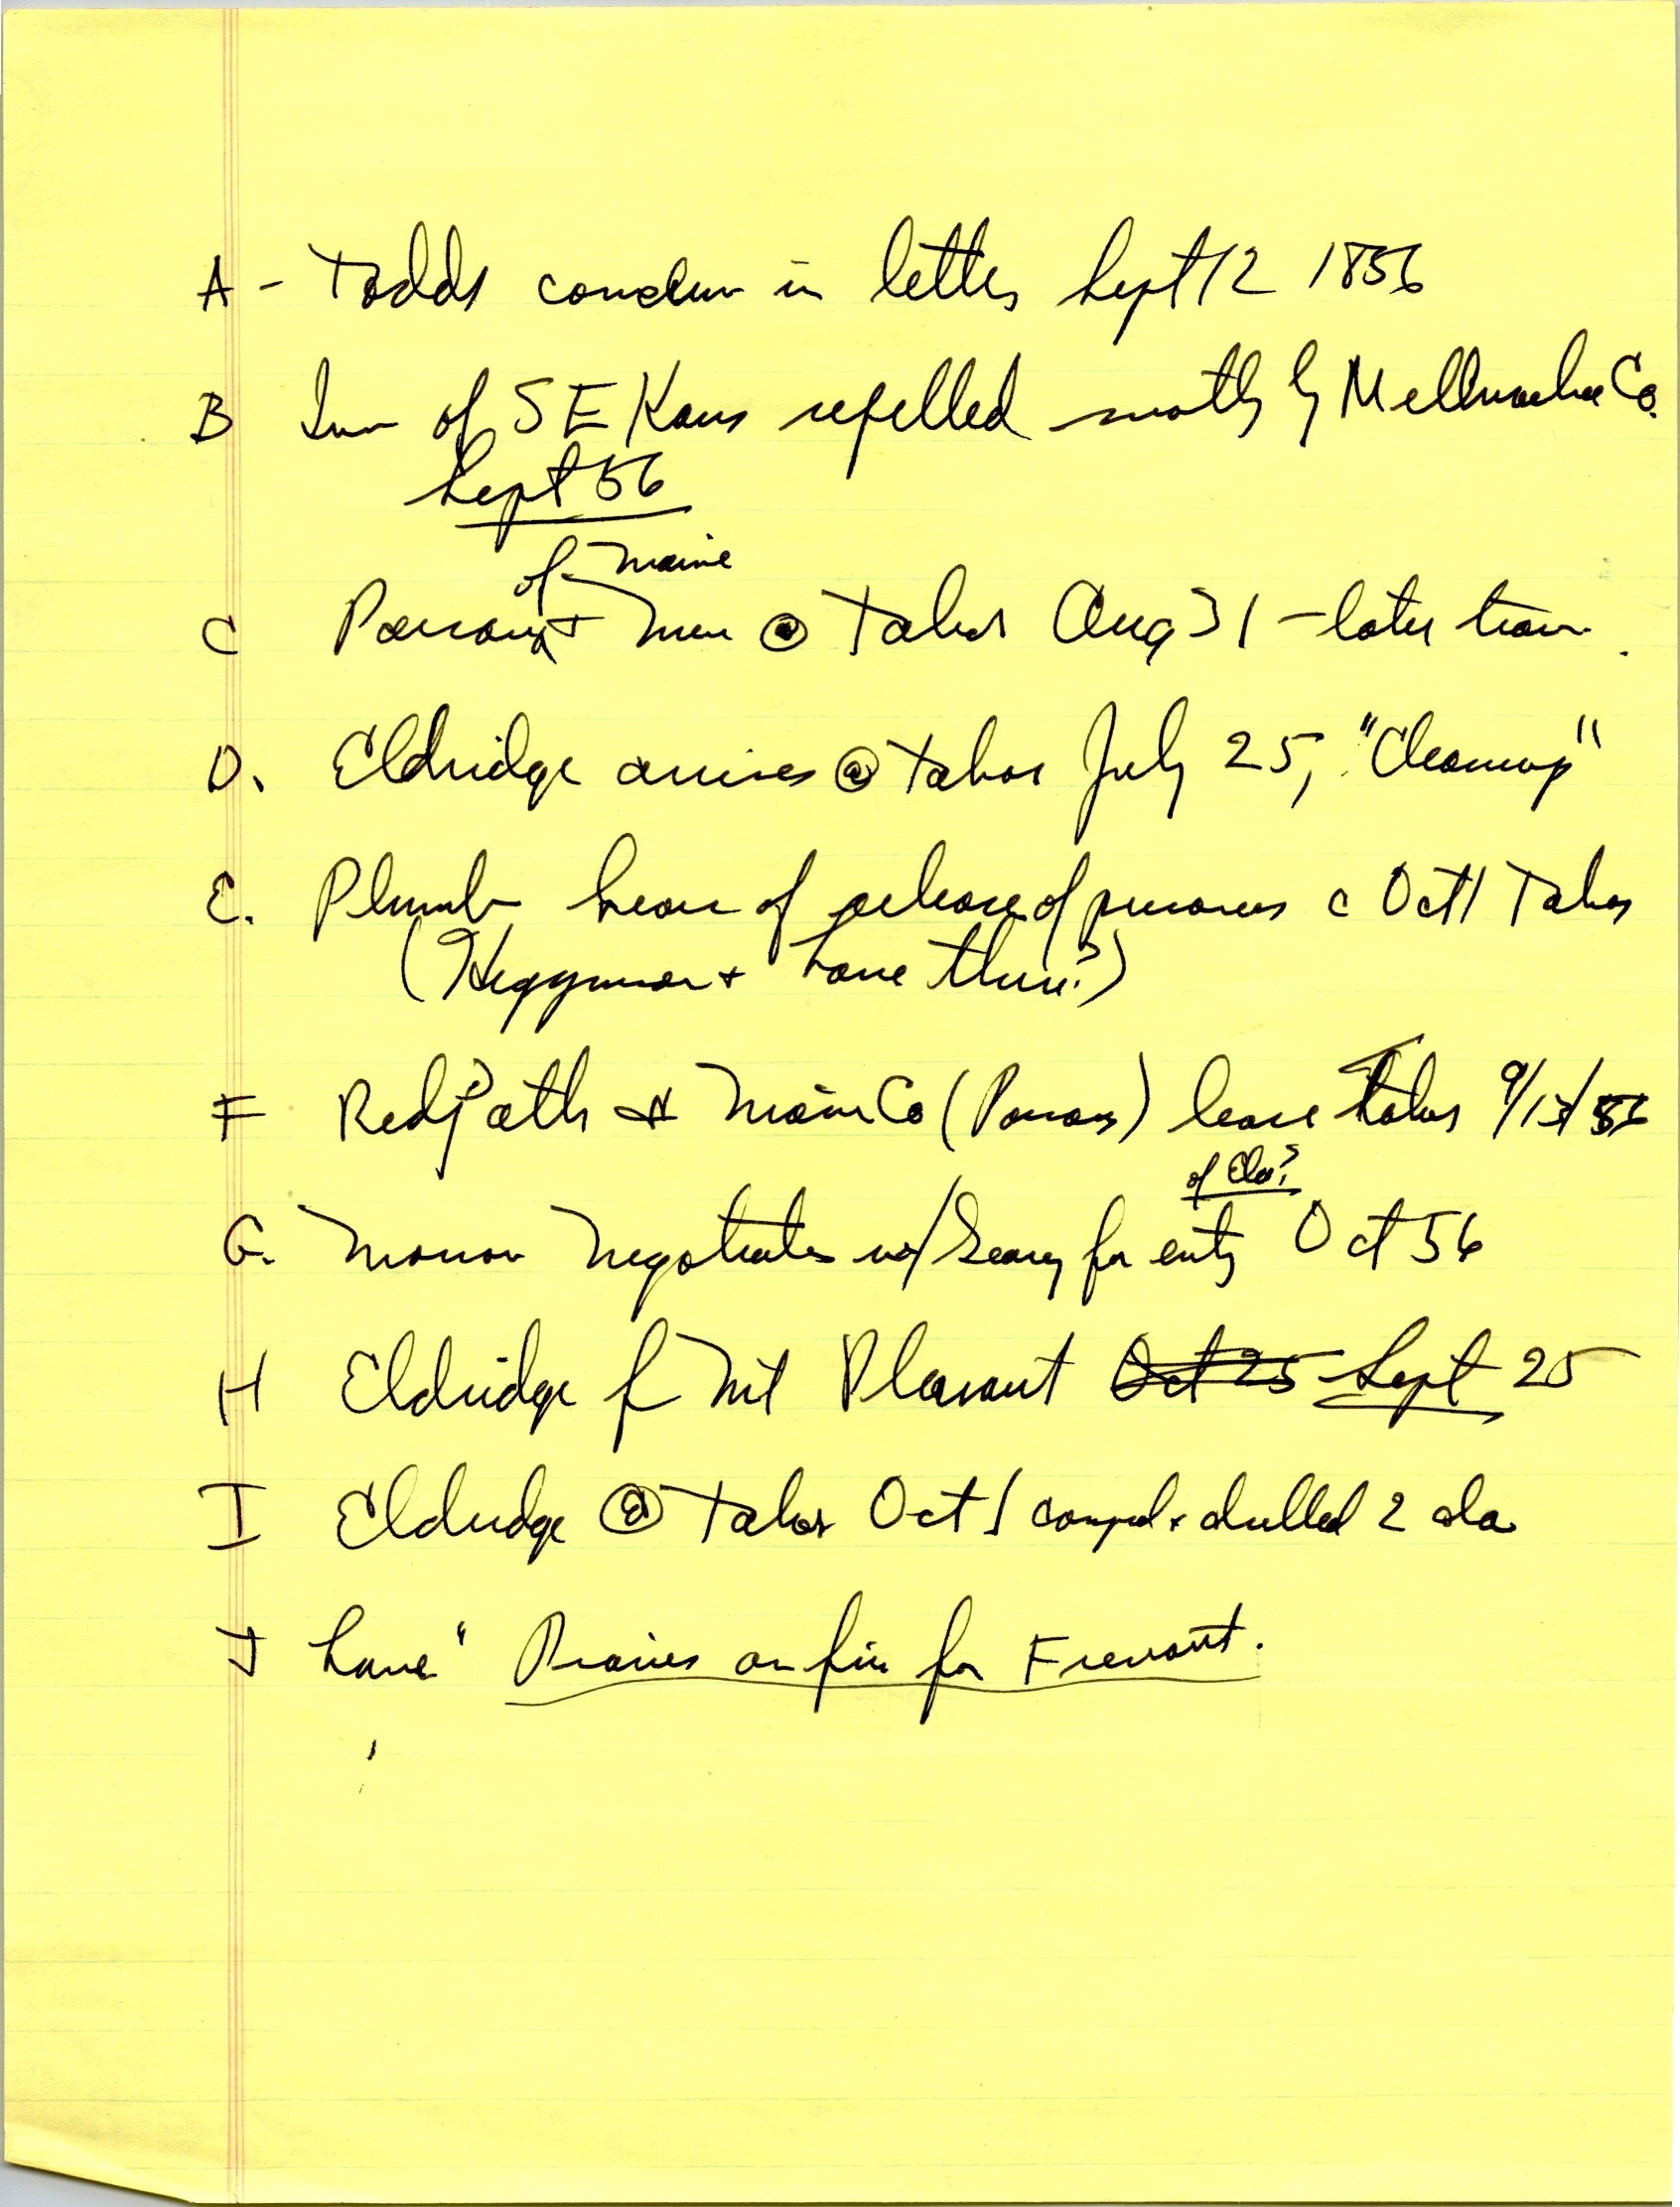 A - Todds in letter Sept 12 1856
B Inv of S E Kans repelled mostly by Co.
Sept 56
of Maine
C Parsons + men @ Tabor Aug 31 - later train.
D. Eldridge arrives @ Tabor July 25, "Cleanup"
E. Plumb hears of release of prisoners c Oct 1 Tabor
( + Lane there?)
F Redpath + Maine Co (Parsons) leave Tabor 9/15/56
of Eld?
G. Negotiates w/ Geary for entry Oct 56
H Eldridge f Mt Pleasant Oct 25 Sept 25
I Eldridge @ Tabor Oct 1 drilled 2 da
J Lane " Prairies on fire for Fremont.